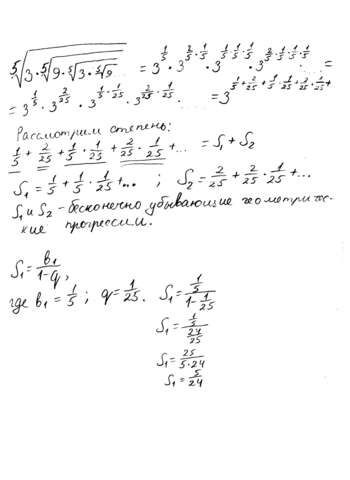 ⁵√(3·⁵√(9·⁵√(3·⁵√9 = 3^(1/5) · 3^(2/5·1/5) · 3^(1/5·1/5·1/5) · 3^(2/5·1/5·1/5·1/5) · =
= 3^(1/5) · 3^(2/25) · 3^(1/5·1/25) · 3^(2/25·1/25) · = 3^(1/5+2/25+1/5·1/25+2/25·1/25+
Рассмотрим степень:
1/5 + 2/25 + 1/5 · 1/25 + 2/25 · 1/25 + ... = S₁ + S₂
S₁ = 1/5 + 1/5 · 1/25 + ... ; S₂ = 2/25 + 2/25 · 1/25 + ...
S₁ и S₂ - бесконечно убывающие геометричес-
кие прогрессии.
S₁ = b₁/(1-q),
где b₁ = 1/5 ; q = 1/25. S₁ = (1/5)/(1 - 1/25)
S₁ = (1/5)/(24/25)
S₁ = 25/(5·24)
S₁ = 5/24